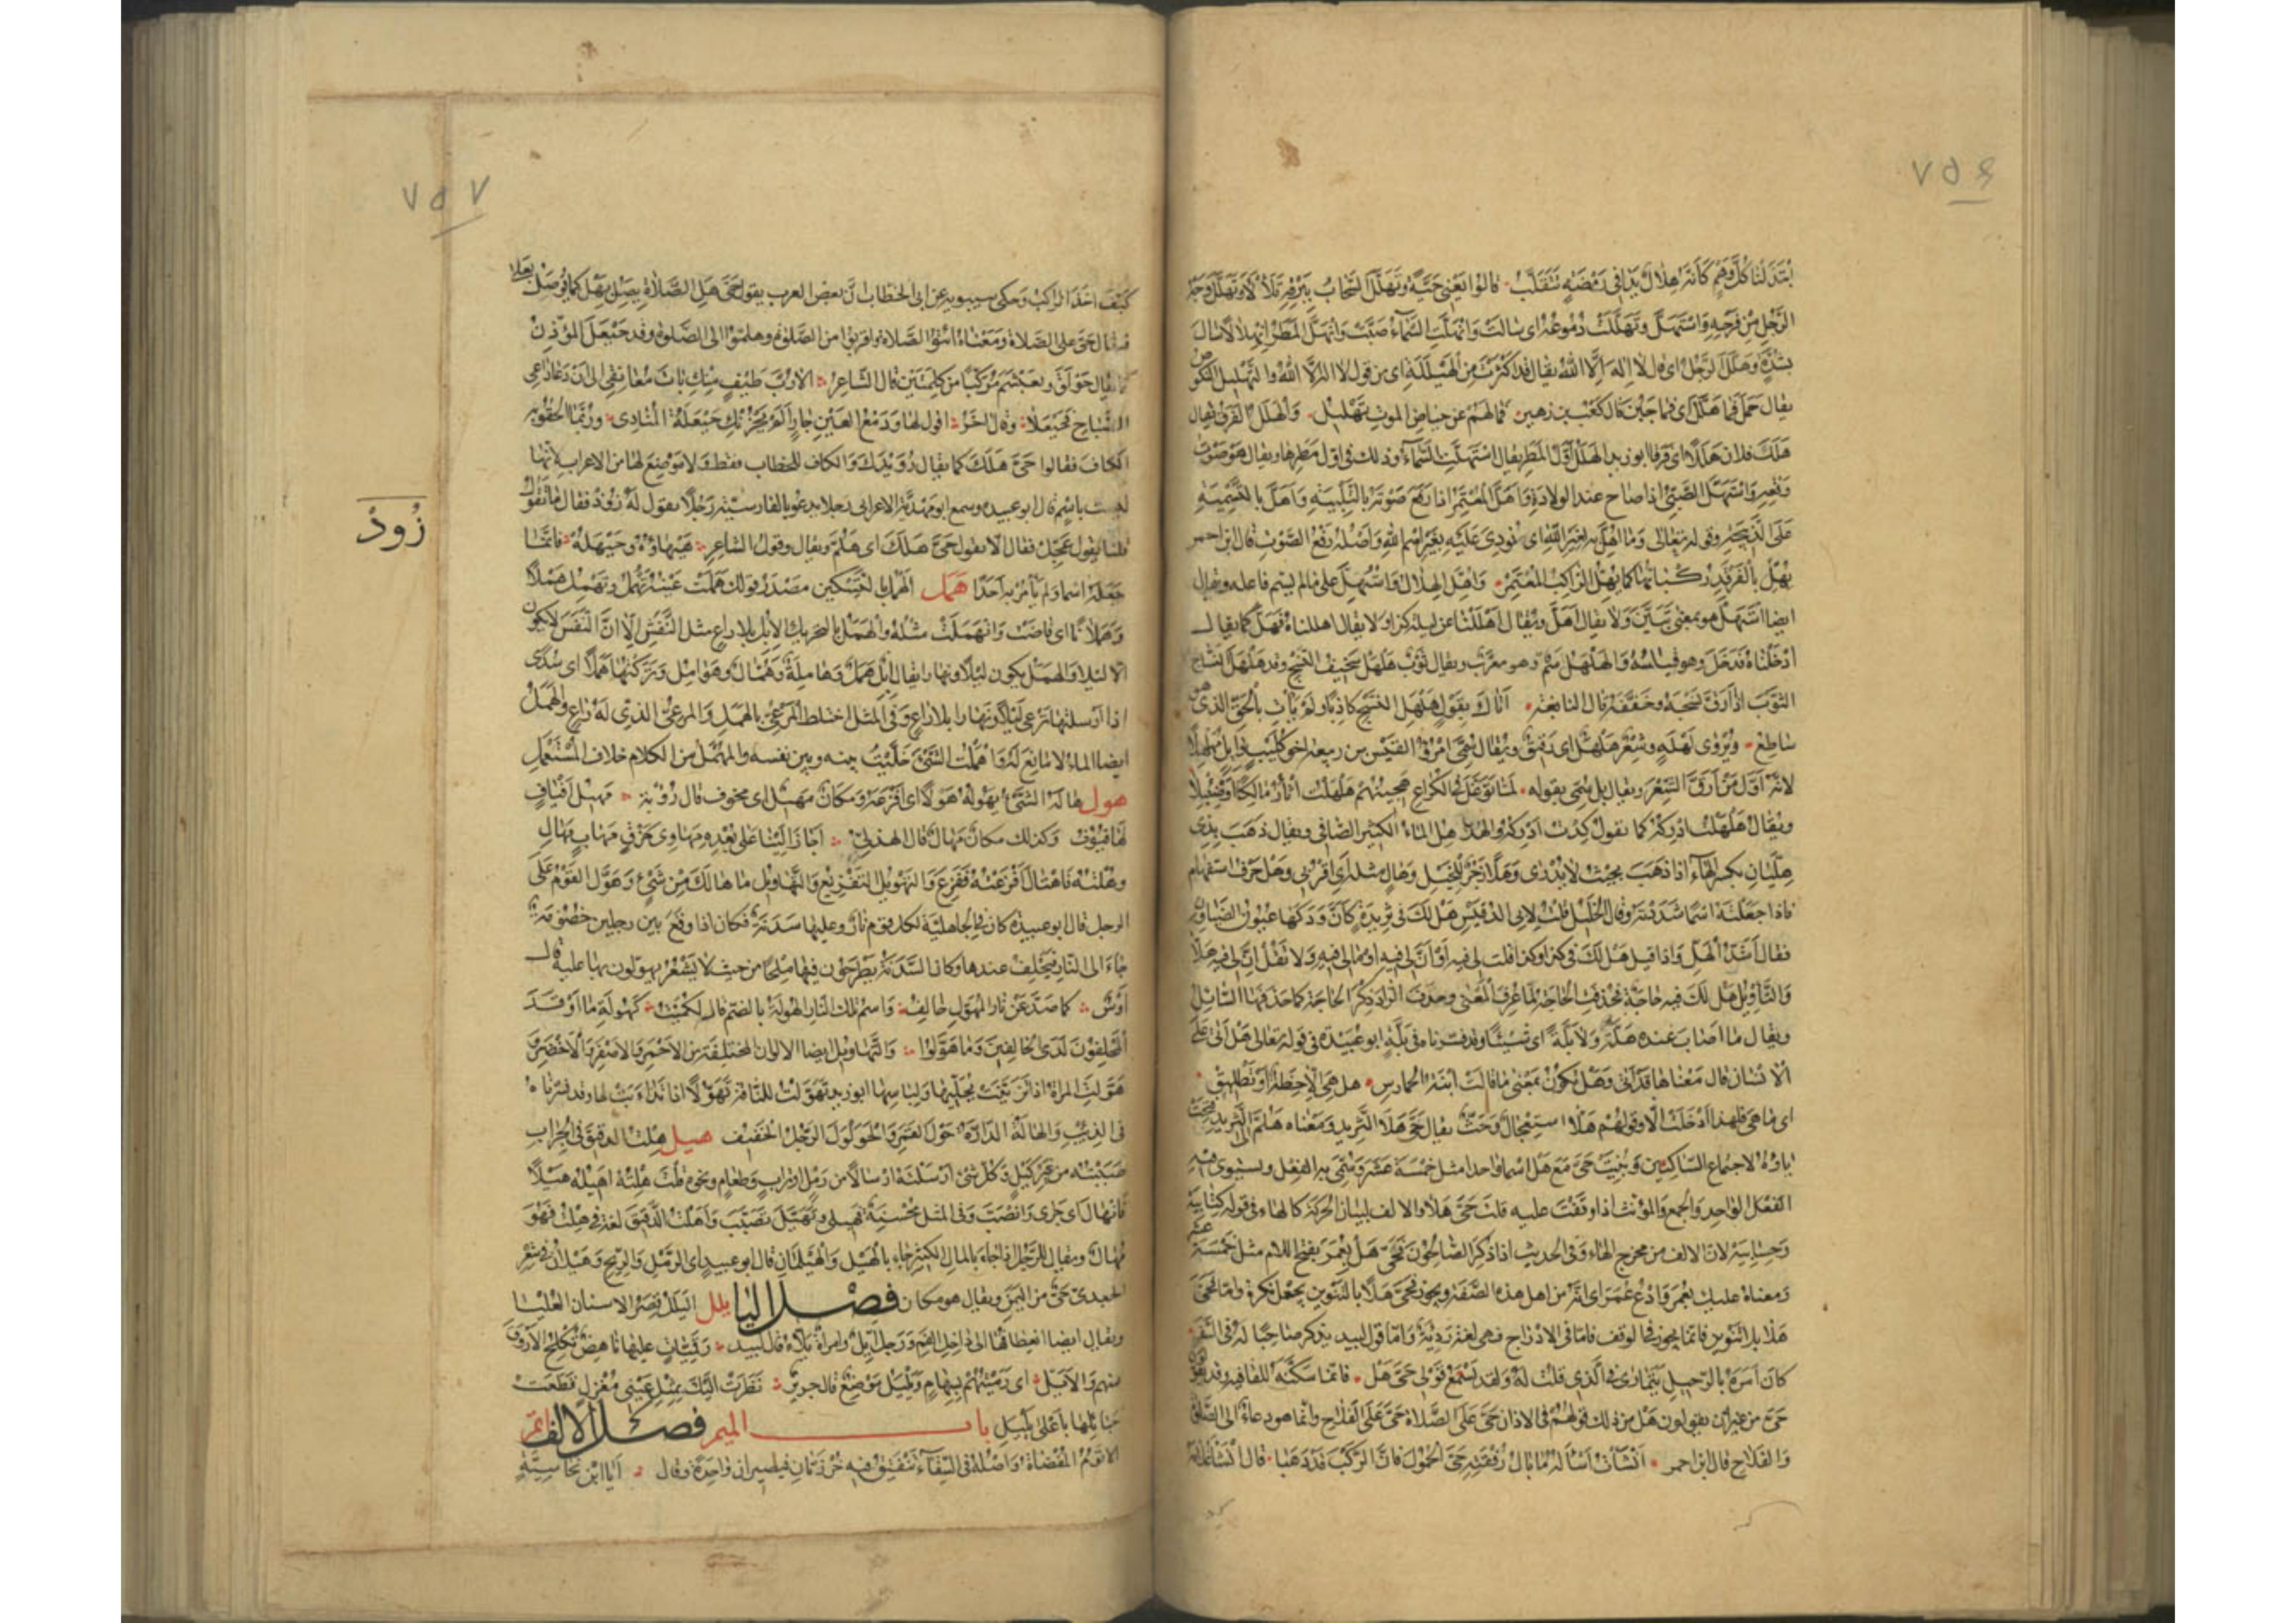 ٧٥٦
ابتذلنا كل وهم كأنه هلال بدا فى رمضة يتقلب قالوا يعنى حية وتهلل السحاب ببرقه تلألأ وتهلل وجه
الرجل من فرحه واستهل وتهللت دموعه اى سالت وانهلت السماء صبت وانهل المطر انهلالا سال
بشدة وهلل الرجل اى قال لا اله الا الله يقال قد اكثرت من الهيللة اى من قول لا اله الا الله والتهليل النكوص
يقال حمل فما هلل اى فما جبن قال كعب بن زهير فما لهم عن حياض الموت تهليل والهلل الفرق يقال
هلك فلان هللا اى فرقا ابو زيد الهلل اول المطر يقال استهلت السماء وذلك فى اول مطرها ويقال هو صوت
وقعه واستهل الصبى اذا صاح عند الولادة واهل المعتمر اذا رفع صوته بالتلبية واهل بالتسمية
على الذبيحة وقوله تعالى وما اهل به لغير الله اى نودى عليه بغير اسم الله واصله رفع الصوت قال ابن احمر
يهل بالفرقد ركبانها كما يهل الراكب المعتمر واهل الهلال واستهل على ما لم يسم فاعله ويقال
ايضا استهل هو بمعنى تبين ولا يقال اهل ويقال اهللنا عن ليلة كذا ولا يقال اهللناه فهل كما يقال
ادخلناه فدخل وهو قياسه والهلهل سم وهو معرب ويقال ثوب هلهل سخيف النسج وقد هلهل النساج
الثوب اذا ارق نسجه وخففه قال النابغة اتاك بقول هلهل النسج كاذبا ولم يأت بالحق الذى هو
ساطع ويروى لهله وشعر هلهل اى رقيق ويقال سمى امرؤ القيس بن ربيعة اخو كليب وائل مهلهلا
لانه اول من ارق الشعر ويقال بل سمى بقوله لما توقل فى الكراع هجينهم هلهلت اثأر مالكا وصنبلا
ويقال هلهلت ادركه كما تقول كدت ادركه والهلاهل الماء الكثير الصافى ويقال ذهب بذى
هليان بكسر الهاء اذا ذهب بحيث لا يدرى وهلا زجر للخيل وهال مثله اى اقربى وهل حرف استفهام
فاذا جعلته اسما شددته وقال الخليل قلت لابى الدقيش هل لك فى ثريدة كأن ودكها عيون الضياون
فقال اشد الهل واذا قيل هل لك فى كذا وكذا قلت لى فيه او ان لى فيه او مالى فيه ولا تقل ان لى فيه هلا
والتأويل هل لك فيه حاجة فحذفت الحاجة لما عرف المعنى وحذف الراد ذكر الحاجة كما حذفها السائل
ويقال ما اصاب عنده هلة ولا بلة اى شيئا وقد فسرناه فى بلة ابو عبيدة فى قوله تعالى هل اتى على
الانسان قال معناها قد اتى وهل تكون بمعنى ما قالت ابنة الحمارس هل هى الا حظة او تطليق
اى ما هى فلهذا ادخلت الا وقولهم هلا استعجال وحث يقال حى هلا الثريد ومعناه هلم الى الثريد فتحت
ياؤه لاجتماع الساكنين وبنيت حى مع هل اسما واحدا مثل خمسة عشر وسمى به الفعل ويستوى فيه
الفعل الواحد والجمع والمؤنث اذا وقفت عليه قلت حى هلا والالف لبيان الحركة كالهاء فى قوله كتابيه
وحسابيه لان الالف من مخرج الهاء وفى الحديث اذا ذكر الصالحون فحى هل بعمر بفتح اللام مثل خمسة عشر
ومعناه عليك بعمر وادع عمر اى انه من اهل هذه الصفة ويجوز فحى هلا بالتنوين يجعل نكرة واما حى
هلا بلا تنوين فانما يجوز فى الوقف فاما فى الادراج فهى لغة رديئة واما قول لبيد يذكر صاحبا له فى السفر
كان امره بالرحيل يتمارى فى الذى قلت له ولقد يسمع قولى حى هل فانما سكنه للقافية وقد يقولون
حى من غير ان يقولون هل من ذلك قولهم فى الاذان حى على الصلاة حى على الفلاح وانما هو دعاء الى الصلاة
والفلاح قال ابن احمر انشأت اسأله ما بال رفقته حى الحمول فان الركب قد ذهبا قال انشأ غلامه
٧٥٧
كيف اخذ الراكب وحكى سيبويه عن ابى الخطاب ان بعض العرب يقول حى هل الصلاة يصل بهل كما يوصل بعلى
فيقال حى على الصلاة ومعناه ائتوا الصلاة واقربوا من الصلوة وهلموا الى الصلوة وقد حيعل المؤذن
كما يقال حولق وتعبشم مركبا من كلمتين قال الشاعر الا رب طيف منك بات معانقى الى ان دعا داعى
الصباح فحيعلا وقال اخر اقول لها ودمع العين جار الم يحزنك حيعلة المنادى وربما الحقوا به
الكاف فقالوا حى هلك كما يقال رويدك والكاف للخطاب فقط ولا موضع لها من الاعراب لانها
ليست باسم قال ابو عبيدة وسمع ابو مهدية الاعرابى رجلا يدعو بالفارسية رجلا يقول له زود فقال ما يقول
قلنا يقول عجل فقال الا يقول حى هلك اى هلم ويقال وقول الشاعر هيهاؤه وحيهله فانما
جعله اسما ولم يأمر به احدا همل الهمل بالتسكين مصدر قولك هملت عينه تهمل وتهمل هملا
وهملانا اى فاضت وانهملت مثله والهمل بالتحريك الابل بلا راع مثل النفش الا ان النفش لا يكون
الا ليلا والهمل يكون ليلا ونهارا يقال ابل همل وهاملة وهمال وهوامل وتركتها هملا اى سدى
اذا ارسلتها ترعى ليلا ونهارا بلا راع وفى المثل اختلط المرعى بالهمل والمرعى الذى له راع والهمل
ايضا الماء لا مانع له واهملت الشئ خليت بينه وبين نفسه والمهمل من الكلام خلاف المستعمل
هول هاله الشئ يهوله هولا اى افزعه ومكان مهيل اى مخوف قال رؤبة مهيل افياف
لها فيوف وكذلك مكان مهال قال الهذلى اجاز الينا على بعده مهاوى خرق مهاب مهال
وهلته فاهتال افزعته ففزع والتهويل التفزيع والتهاويل ما هالك من شئ وهول القوم على
الرجل قال ابو عبيدة كان فى الجاهلية لكل قوم نار وعليها سدنة فكان اذا وقع بين رجلين خصومة
جاءا الى النار فيحلف عندها وكان السدنة يطرحون فيها ملحا من حيث لا يشعر يهولون بها عليه قال
اوس كما صد عن نار المهول حالف واسم تلك النار الهولة بالضم قال الكميت كهولة ما اوقد
المحلفون لدى الحالفين وما هولوا والتهاويل ايضا الالوان المختلفة من الاحمر والاصفر والاخضر
هولت المرأة اذا تزينت بحليها ولباسها ابو زيد تهولت للناقة تهولا اذا تذاءبت لها وقد فسرناه
فى الذئب والهالة الدارة حول القمر والهولول الرجل الخفيف هيل هلت الدقيق فى الجراب
صببته من غير كيل وكل شئ ارسلته ارسالا من رمل او تراب وطعام ونحوه قلت هلته اهيله هيلا
فانهال اى جرى وانصب وفى المثل محسنة فهيلى وتهيل تصبب واهلت الدقيق لغة فى هلت فهو
مهال ويقال للرجل اذا جاء بالمال الكثير جاء بالهيل والهيلمان قال ابو عبيد اى الرمل والريح وهيلان فى شعر
الجعدى حى من اليمن ويقال هو مكان فصل اليا يلل اليلل قصر الاسنان العليا
ويقال ايضا انعطافها الى داخل الفم ورجل ايل وامرأة يلاء قال لبيد رقيات عليها ناهض تكلح الاروق
منهم والايل اى رميتهم بسهام ويليل موضع قال جرير نظرت اليك بمثل عينى مغزل قطعت
حبائلها باعلى يليل باب الميم فصل الالف اتم
الاتوم المفضاة واصله فى السقاء تنفتق فيه خرزتان فيصيران واحدة وقال ايا ابن نخاسية
زود